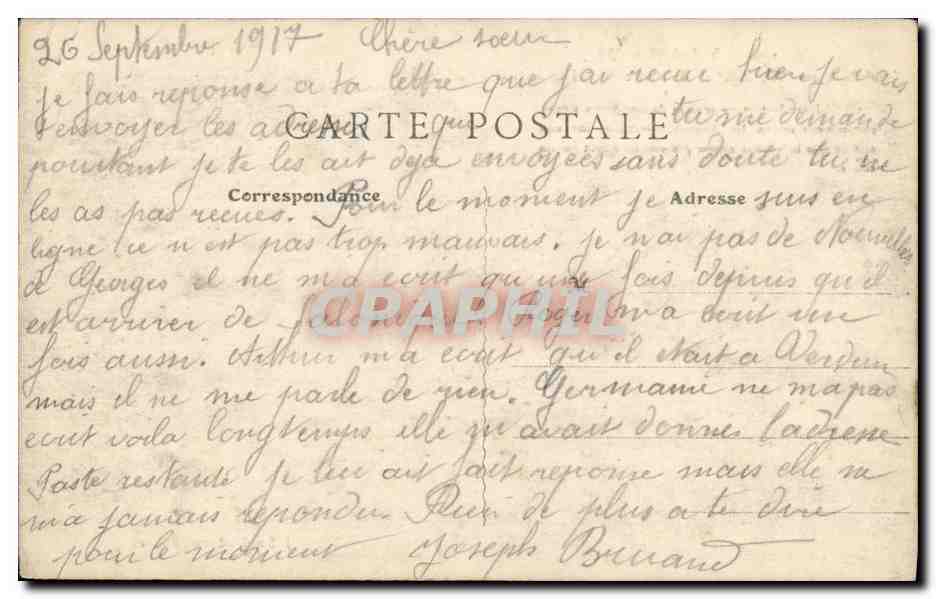 26 Septembre 1917 Chère soeur
je fais reponse a ta lettre que j'ai recue hier je vais
t envoyer les adresses que tu me demande
CARTE POSTALE
pourtant je te les ait deja envoyées sans doute tu ne
Correspondance Adresse
les as pas recues. Pour le moment je suis en
ligne ce n est pas trop mauvais. je n'ai pas de Nouvelles
de Georges il ne m'a ecrit qu'une fois depuis qu'il
est arriver de Roger m'a ecrit une
CPAPHIL
fois aussi. Arthur m'a ecrit qu'il etait a Verdun
mais il ne me parle de rien. Germaine ne m'a pas
ecrit voila longtemps elle m'avait donner l'adresse
Poste restante je leu ait fait reponse mais elle ne
m'a jamais repondu. Rien de plus a te dire
pour le moment Joseph Bruand